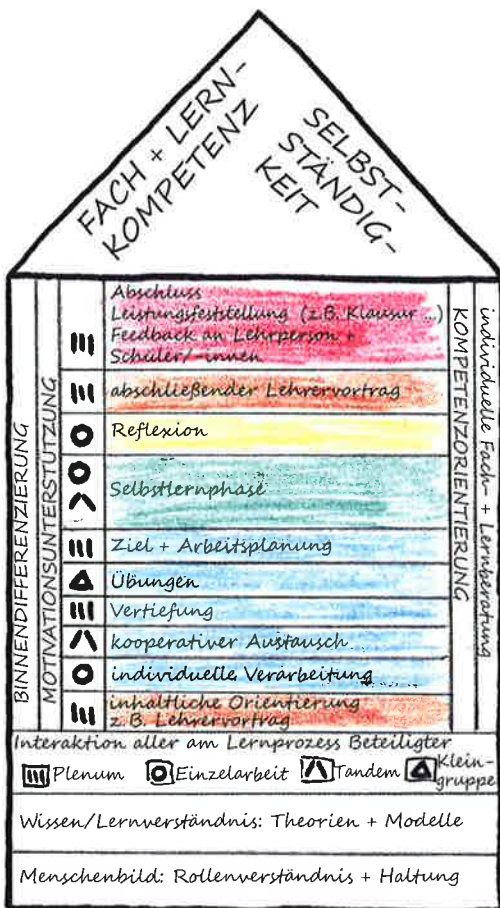 FACH + LERN-
KOMPETENZ
SELBST-
STÄNDIG-
KEIT
BINNENDIFFERENZIERUNG
MOTIVATIONSUNTERSTÜTZUNG
Abschluss
Leistungsfeststellung (z.B. Klausur ...)
Feedback an Lehrperson +
Schüler/-innen
abschließender Lehrervortrag
Reflexion
Selbstlernphase
Ziel + Arbeitsplanung
Übungen
Vertiefung
kooperativer Austausch
individuelle Verarbeitung
inhaltliche Orientierung
z.B. Lehrervortrag
KOMPETENZORIENTIERUNG
individuelle Fach- + Lernberatung
Interaktion aller am Lernprozess Beteiligter
Plenum Einzelarbeit Tandem Klein-
gruppe
Wissen/Lernverständnis: Theorien + Modelle
Menschenbild: Rollenverständnis + Haltung